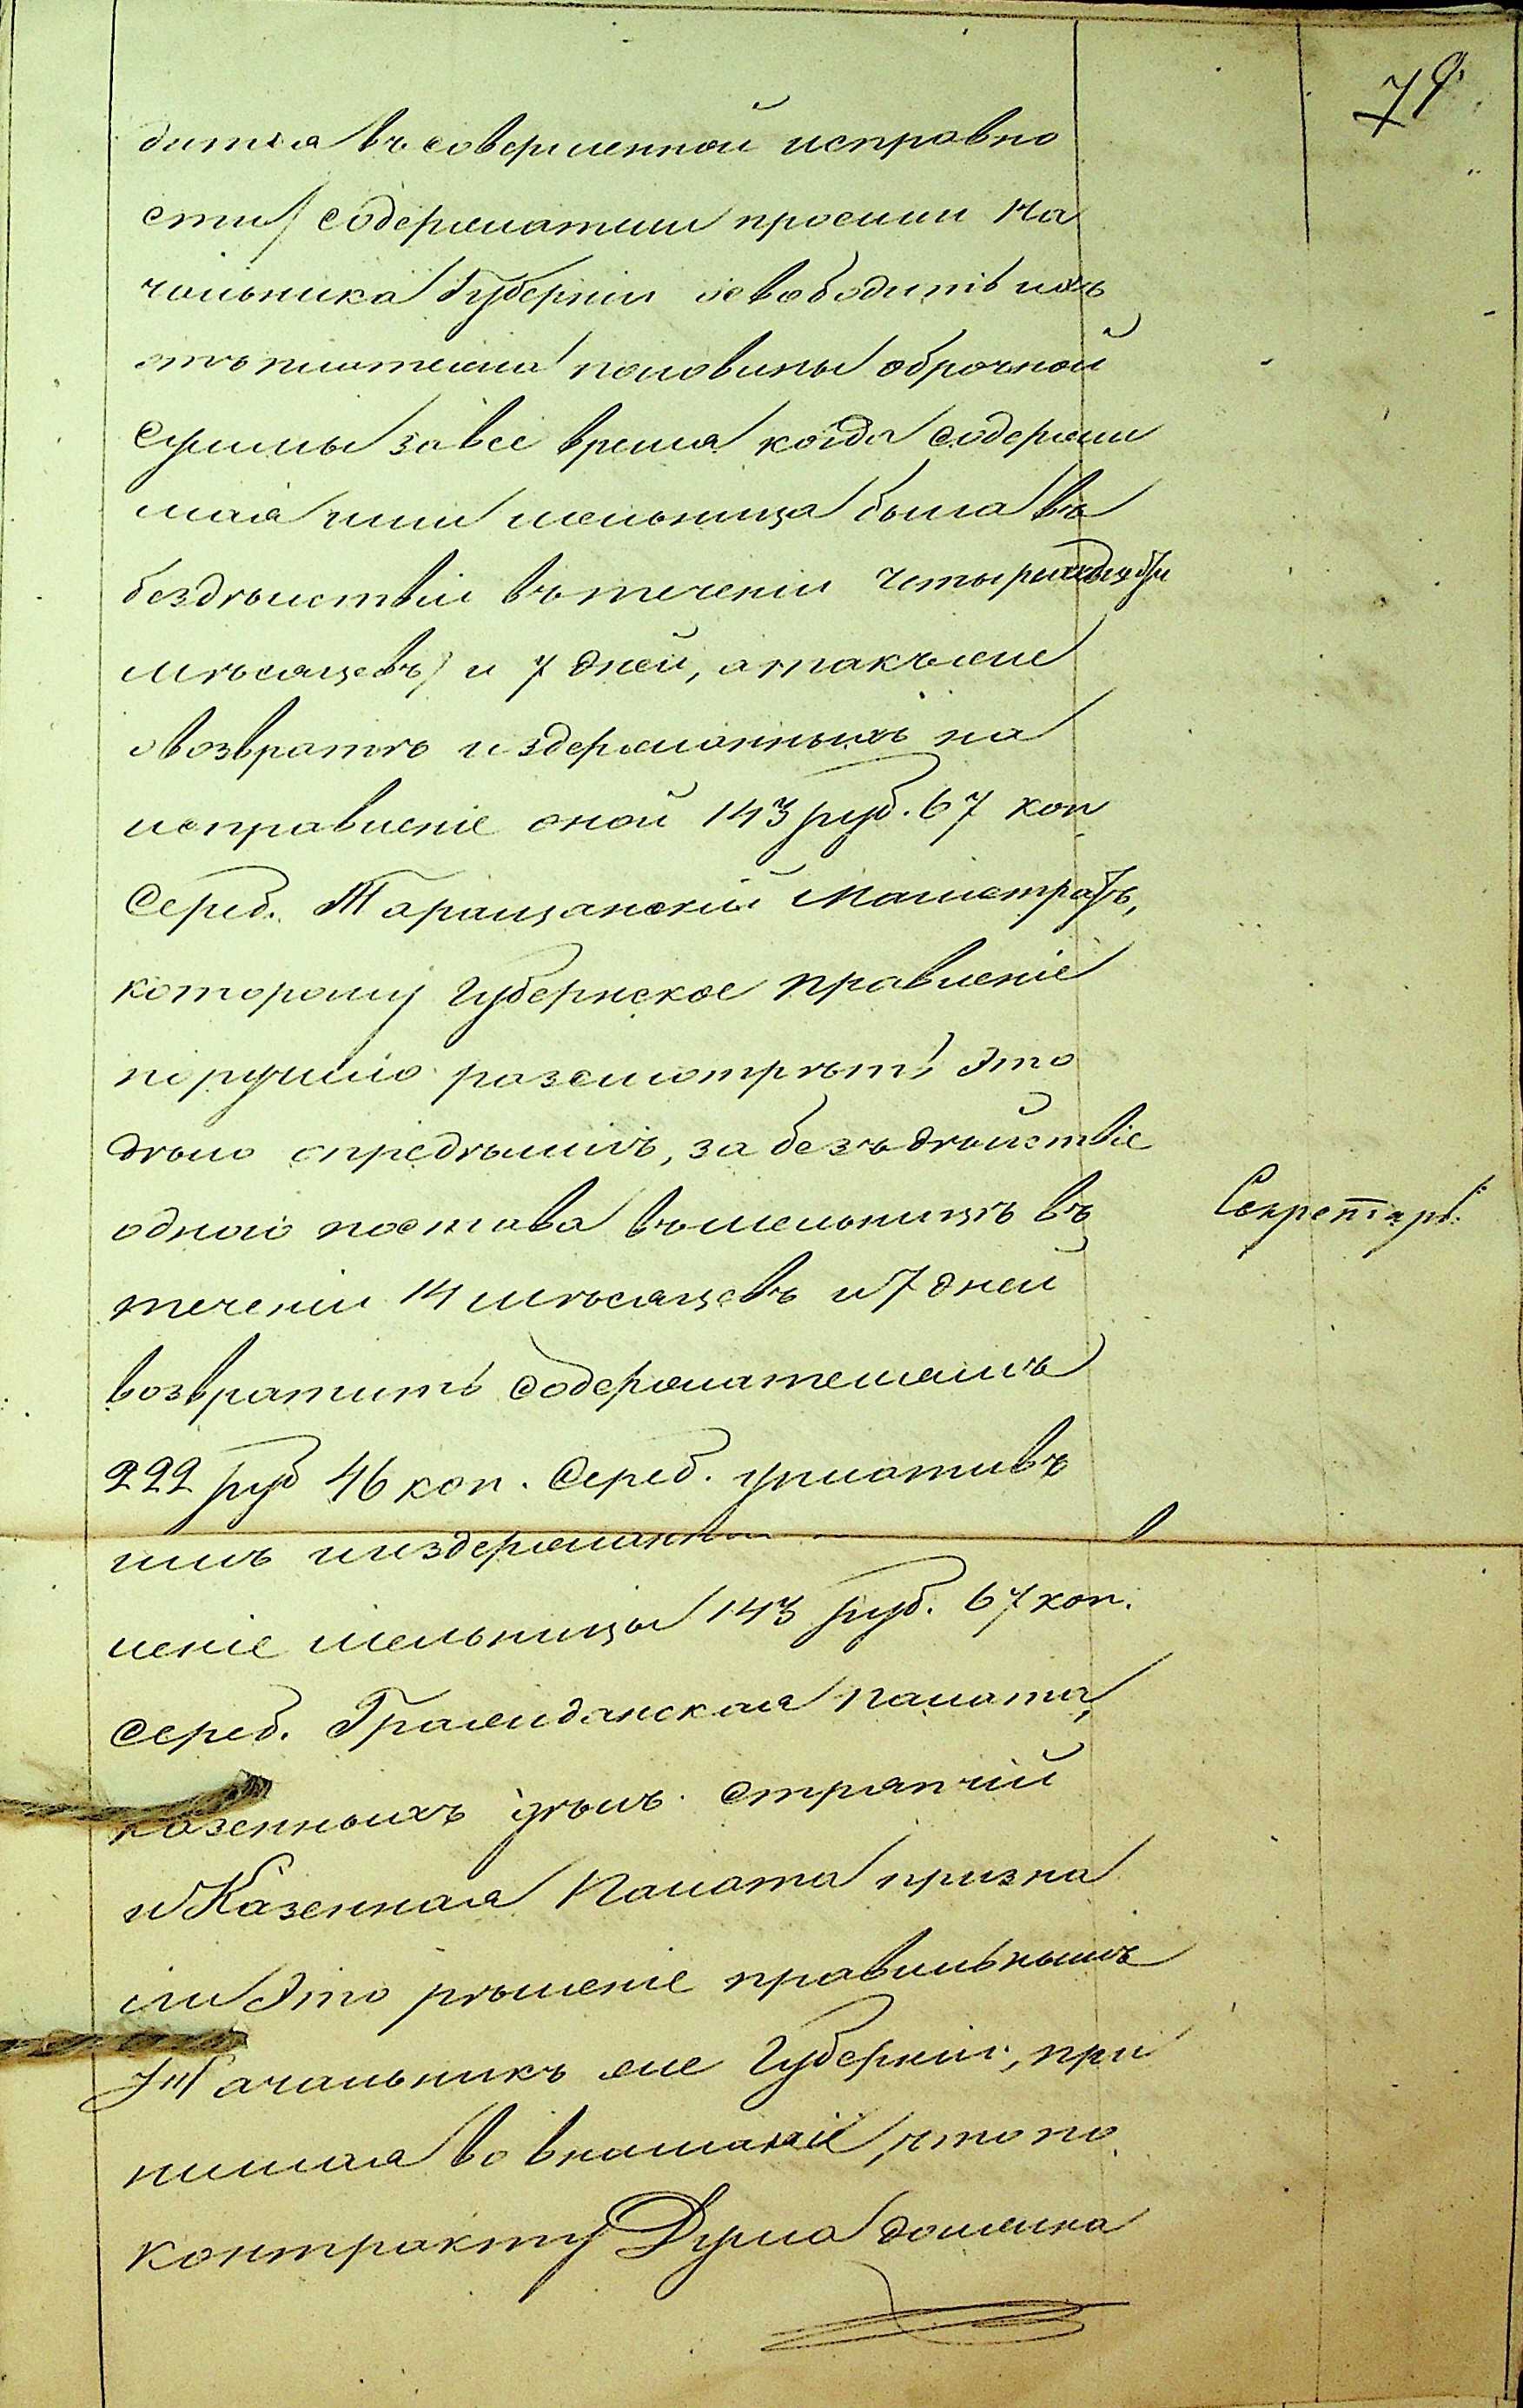 79
дится въ совершенной исправно
сти/ содержатели просили На
чальника Губерніи освободить ихъ
отъ платежа половины оброчной
Суммы за все время когда содержи
мая ими мельница была въ
бездѣйствіи въ теченіи четырнадцати
мѣсяцевъ и 7 дней, а также
о возвратѣ издержанныхъ на
исправленіе оной 143 руб. 67 коп
Сереб. Таращанскій Магистратъ,
которому Губернское правленіе
поручило разсмотрѣть это
дѣло опредѣлилъ, за безъдѣйствіе
одного постава въ мельницѣ въ
Секретарь
теченіи 14 мѣсяцевъ и 7 дней
возвратить Содержателямъ
222 руб 46 коп. Сереб. уплативъ
имъ и издержанн
леніе мельницы 143 руб. 67 коп.
Сереб. Гражданская палата,
казенныхъ дѣлъ Стряпчій
и Казенная Палата призна
ли это рѣшеніе правильнымъ
Начальникъ же Губерніи, при
нимая во вниманіе, что по
контракту Дума должна